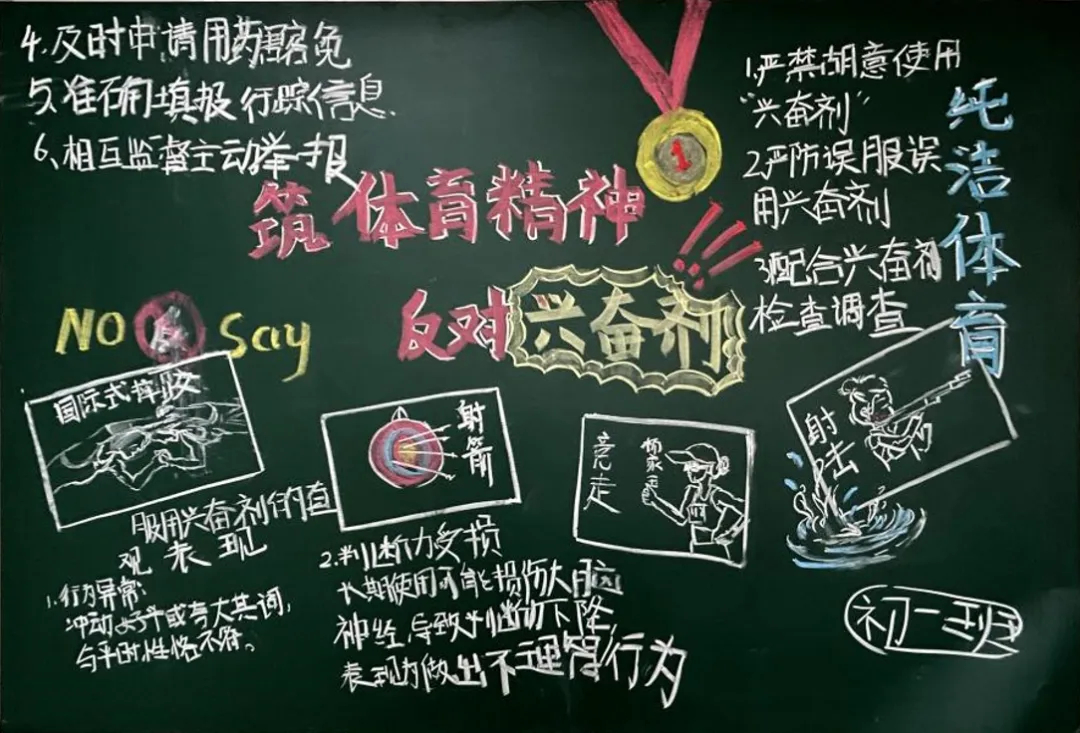 4.及时申请用药豁免
5.准确填报行踪信息.
6.相互监督主动举报
筑体育精神
反对兴奋剂
1.严禁故意使用
"兴奋剂"
2.严防误服误
用兴奋剂
3.配合兴奋剂
检查调查
纯洁体育
NO Say
国际式摔跤
1
射箭
竞走
杨家玉
射击
服用兴奋剂的直
观表现
1.行为异常:
冲动好斗或夸大其词,
与平时性格不符。
2.判断力受损
长期使用可能损伤大脑
神经,导致判断力下降,
表现为做出不理智行为
初一 班